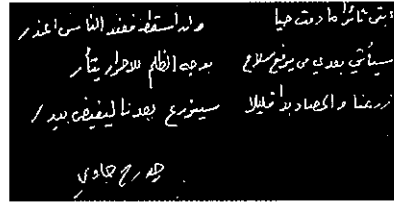 أبقى ثائرًا ما دمت حيا ولو أسقط فعند الناس أعذر
سيأتي بعدي من يرفع سلاح بوجه الظلم للاحرار يثأر
زرعنا والحصاد بدا قليلا سيزرع بعدنا ليفيض بيدر